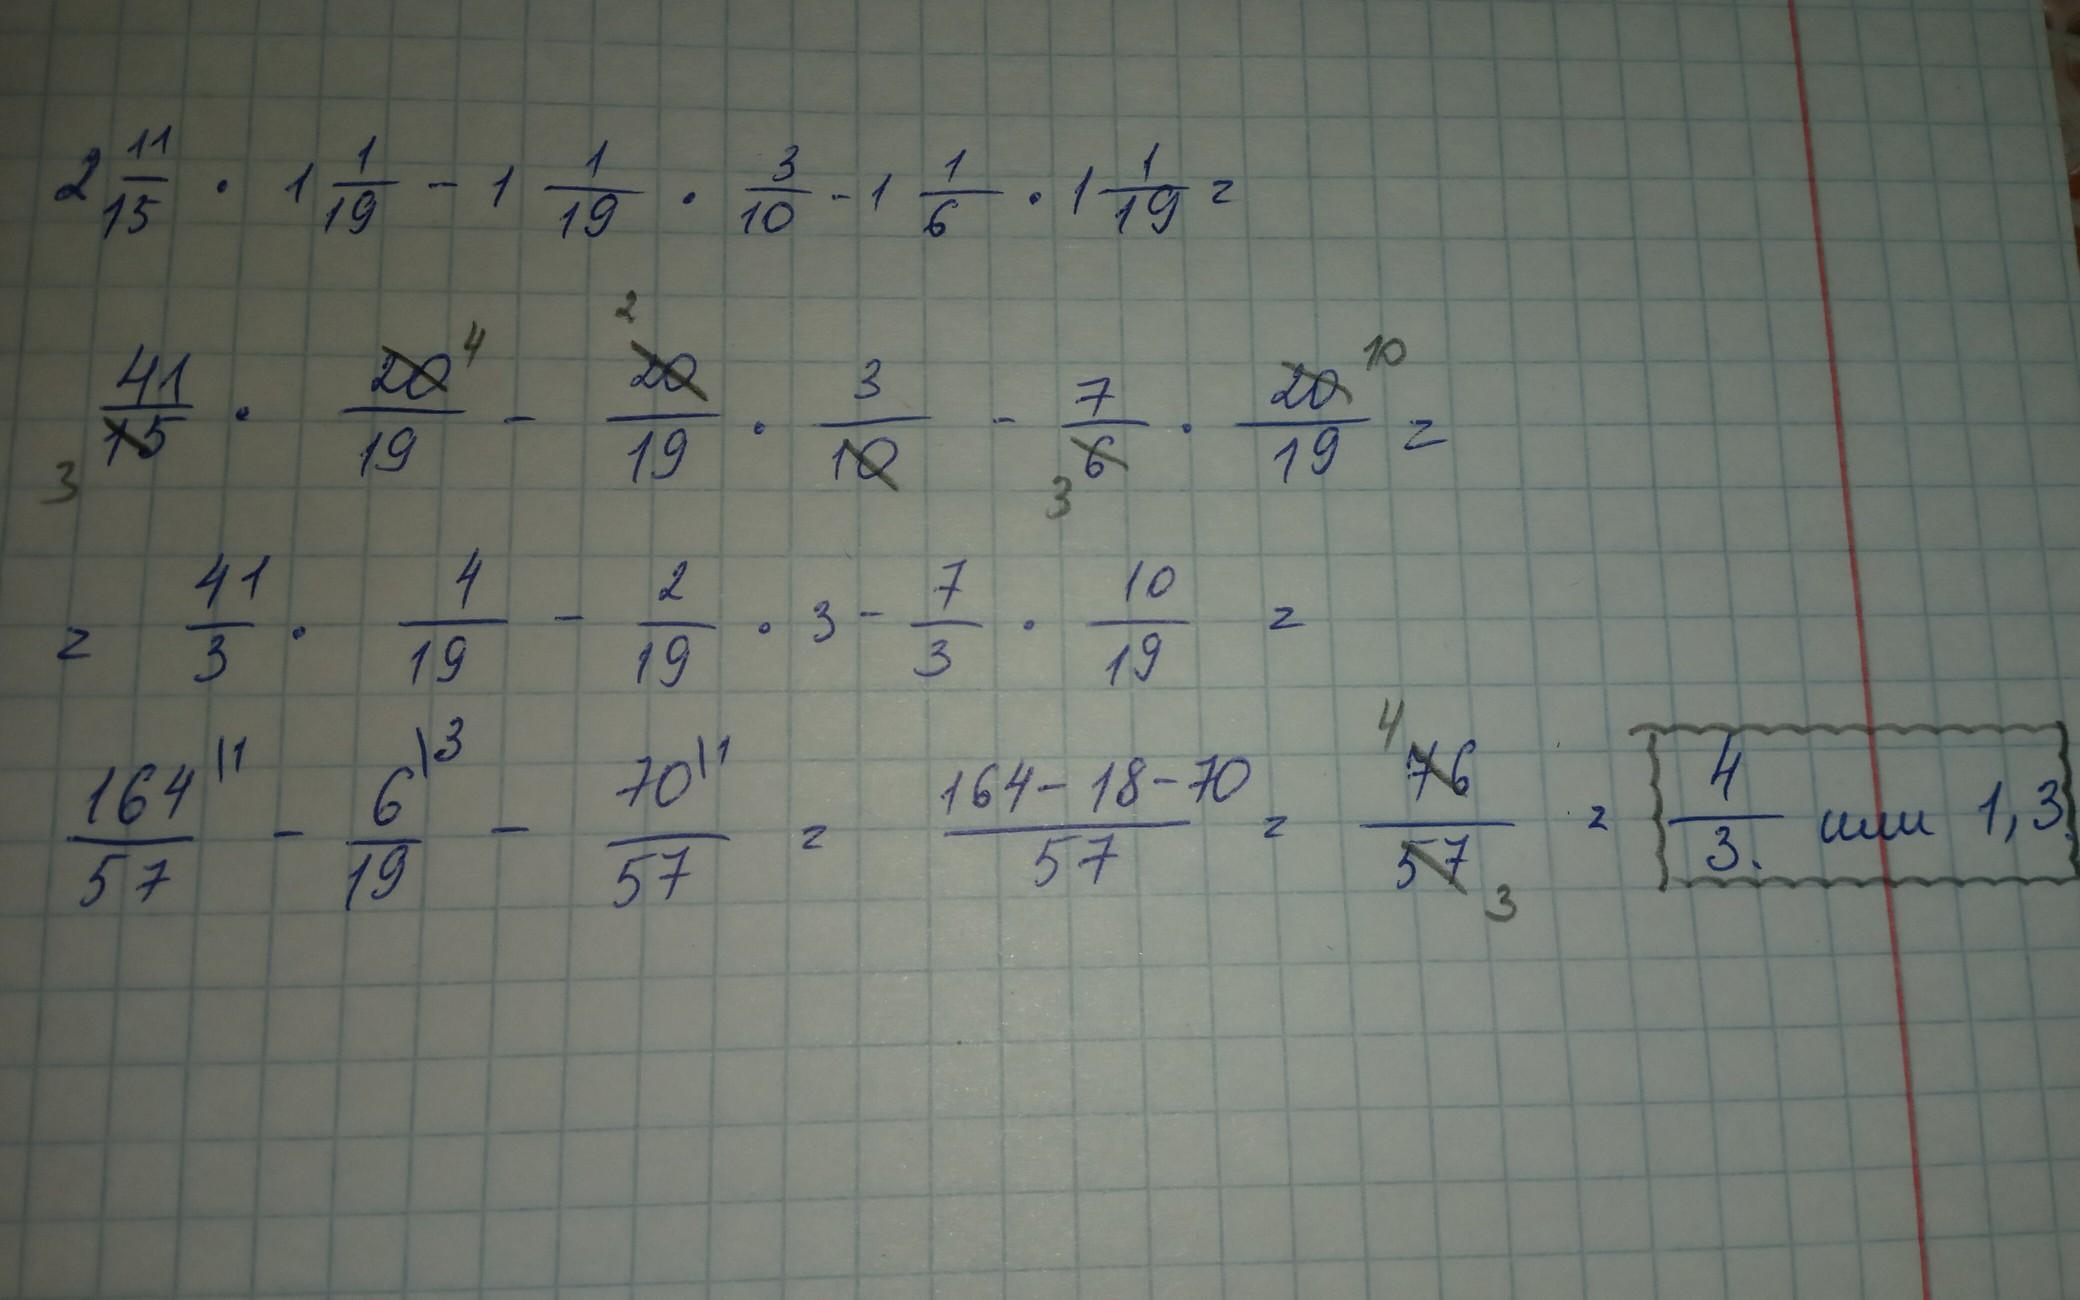 2 11/15 · 1 1/19 - 1 1/19 · 3/10 - 1 1/6 · 1 1/19 =
41/15 3 · 20/19 4 - 2 20/19 · 3/10 - 7/6 3 · 20/19 10 =
= 41/3 · 4/19 - 2/19 · 3 - 7/3 · 10/19 =
164/57 \1 - 6/19 \3 - 70/57 \1 = 164-18-70/57 = 4 76/57 3 = 4/3. или 1,3